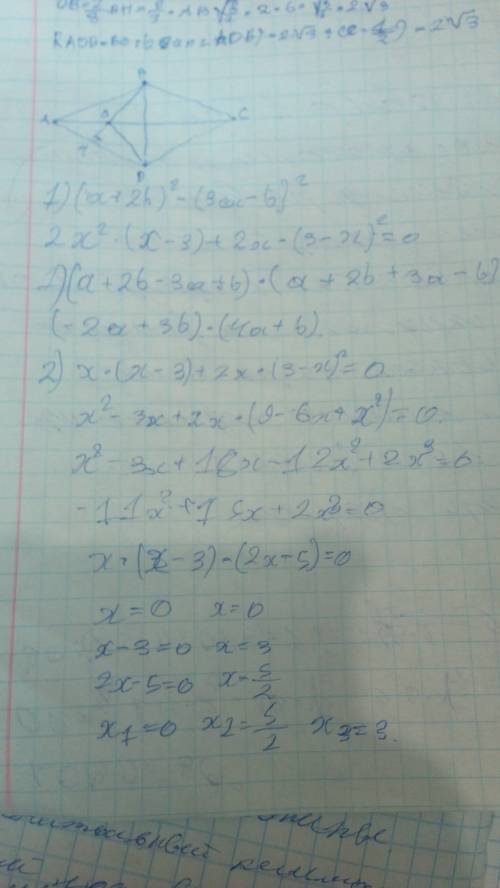 A B C D O
1) (a+2b)² - (3a-b)²
2x² · (x-3) + 2x · (3-x)² = 0
1) (a+2b-3a+b) · (a+2b+3a-b)
(-2a+3b) · (4a+b)
2) x · (x-3) + 2x · (3-x)² = 0
x² - 3x + 2x · (9-6x+x²) = 0
x² - 3x + 18x - 12x² + 2x³ = 0
-11x² + 15x + 2x³ = 0
x · (x-3) · (2x-5) = 0
x = 0 x = 0
x-3 = 0 x = 3
2x-5 = 0 x - 5/2
x1 = 0 x2 = 5/2 x3 = 3.